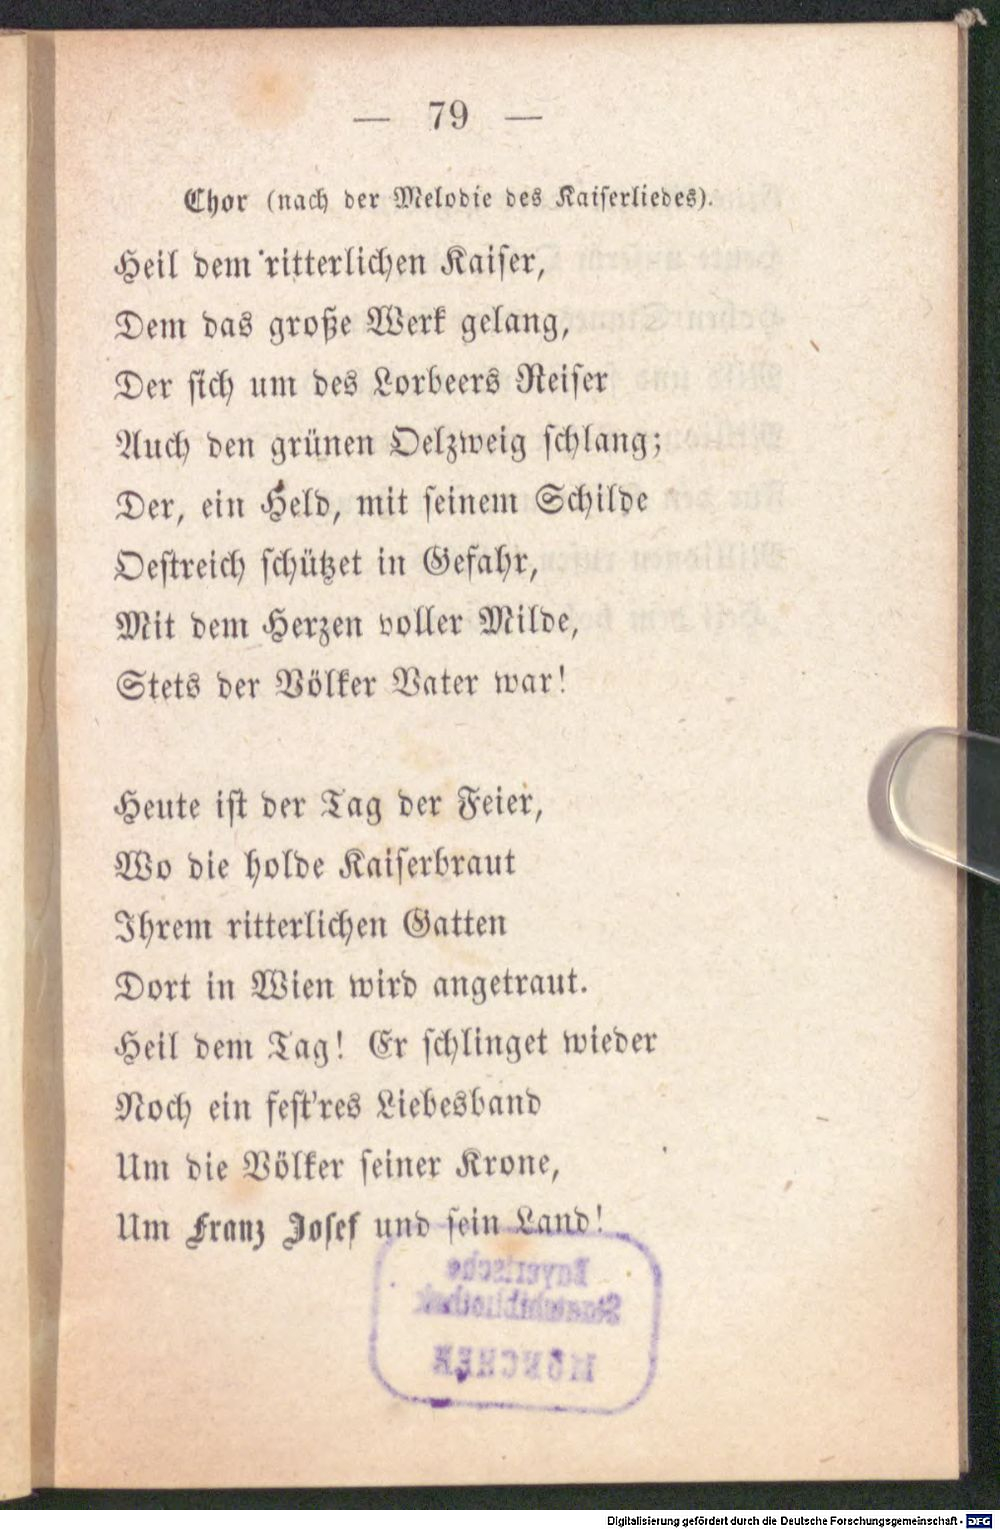 — 79 —
Chor (nach der Melodie des Kaiserliedes).
Heil dem ritterlichen Kaiser,
Dem das große Werk gelang,
Der sich um des Lorbeers Reiser
Auch den grünen Oelzweig schlang;
Der, ein Held, mit seinem Schilde
Oestreich schützet in Gefahr,
Mit dem Herzen voller Milde,
Stets der Völker Vater war!
Heute ist der Tag der Feier,
Wo die holde Kaiserbraut
Ihrem ritterlichen Gatten
Dort in Wien wird angetraut.
Heil dem Tag! Er schlinget wieder
Noch ein fest'res Liebesband
Um die Völker seiner Krone,
Um Franz Josef und sein Land!
Bayerische
Staatsbibliothek
MÜNCHEN
Digitalisierung gefördert durch die Deutsche Forschungsgemeinschaft - DFG